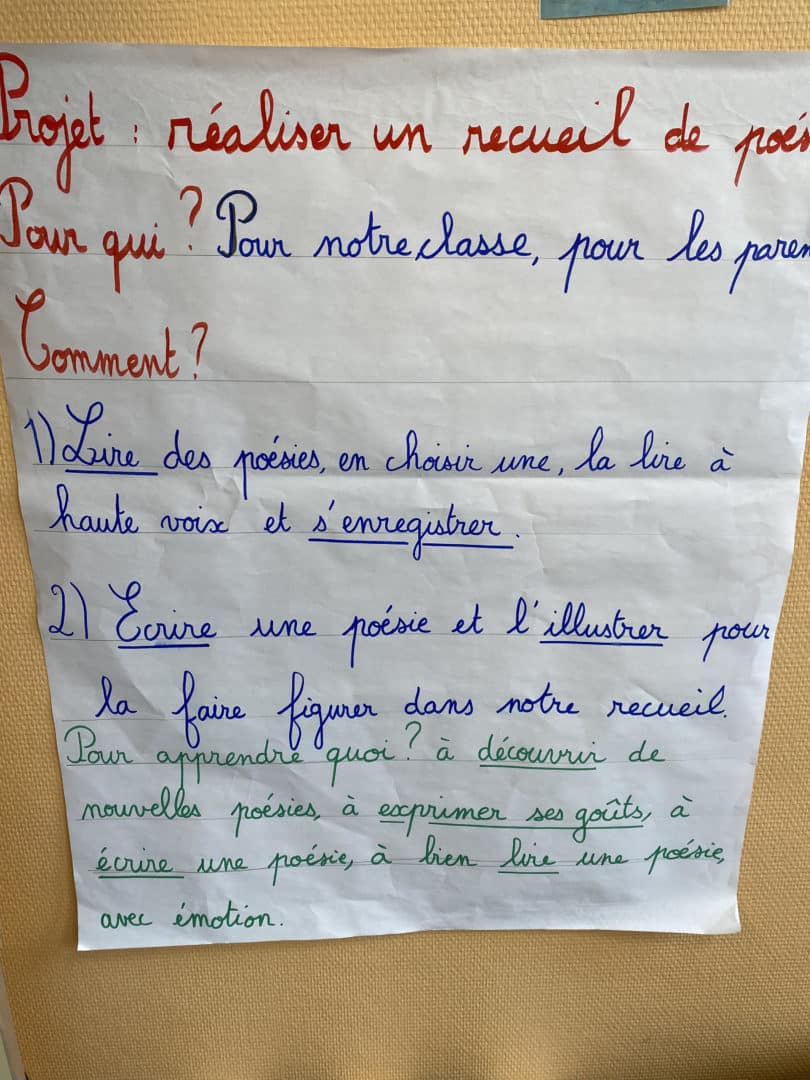 Projet : réaliser un recueil de poés
Pour qui ? Pour notre classe, pour les paren
Comment ?
1) Lire des poésies, en choisir une, la lire à
haute voix et s'enregistrer.
2) Ecrire une poésie et l'illustrer pour
la faire figurer dans notre recueil.
Pour apprendre quoi ? à découvrir de
nouvelles poésies, à exprimer ses goûts, à
écrire une poésie, à bien lire une poésie,
avec émotion.